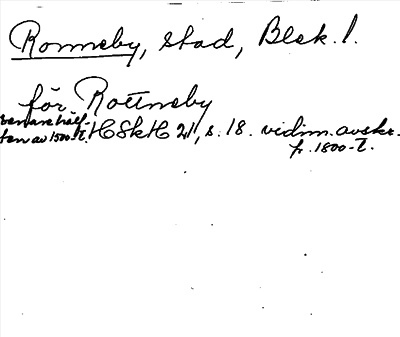 Ronneby, stad, Blek. l.
för Rottneby
senare hälf-
ten av 1500-t. HSkH 21, s. 18. vidim. avskr.
fr. 1800-t.